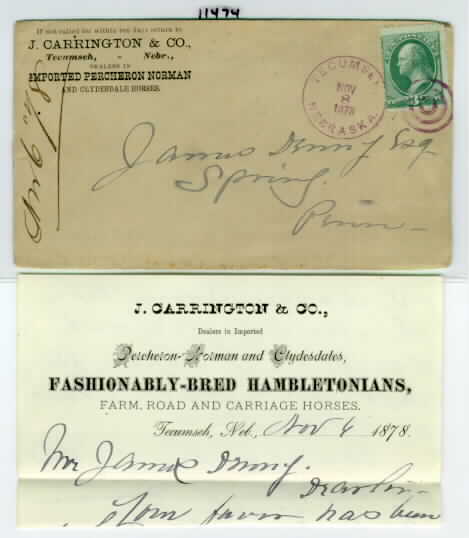 11474
If not called for within ten days return to
J. CARRINGTON & CO.,
Tecumseh, - Nebr.,
DEALERS IN
IMPORTED PERCHERON NORMAN
AND CLYDESDALE HORSES.
TECUMSEH
NOV
8
1878
NEBRASKA.
James Denny Esq
Spring
Penn
J. CARRINGTON & CO.,
Dealers in Imported
Percheron-Norman and Clydesdales,
FASHIONABLY-BRED HAMBLETONIANS,
FARM, ROAD AND CARRIAGE HORSES.
Tecumseh, Neb., Nov 6 1878.
Mr James Denny.
Dear Sir
Your favor has been